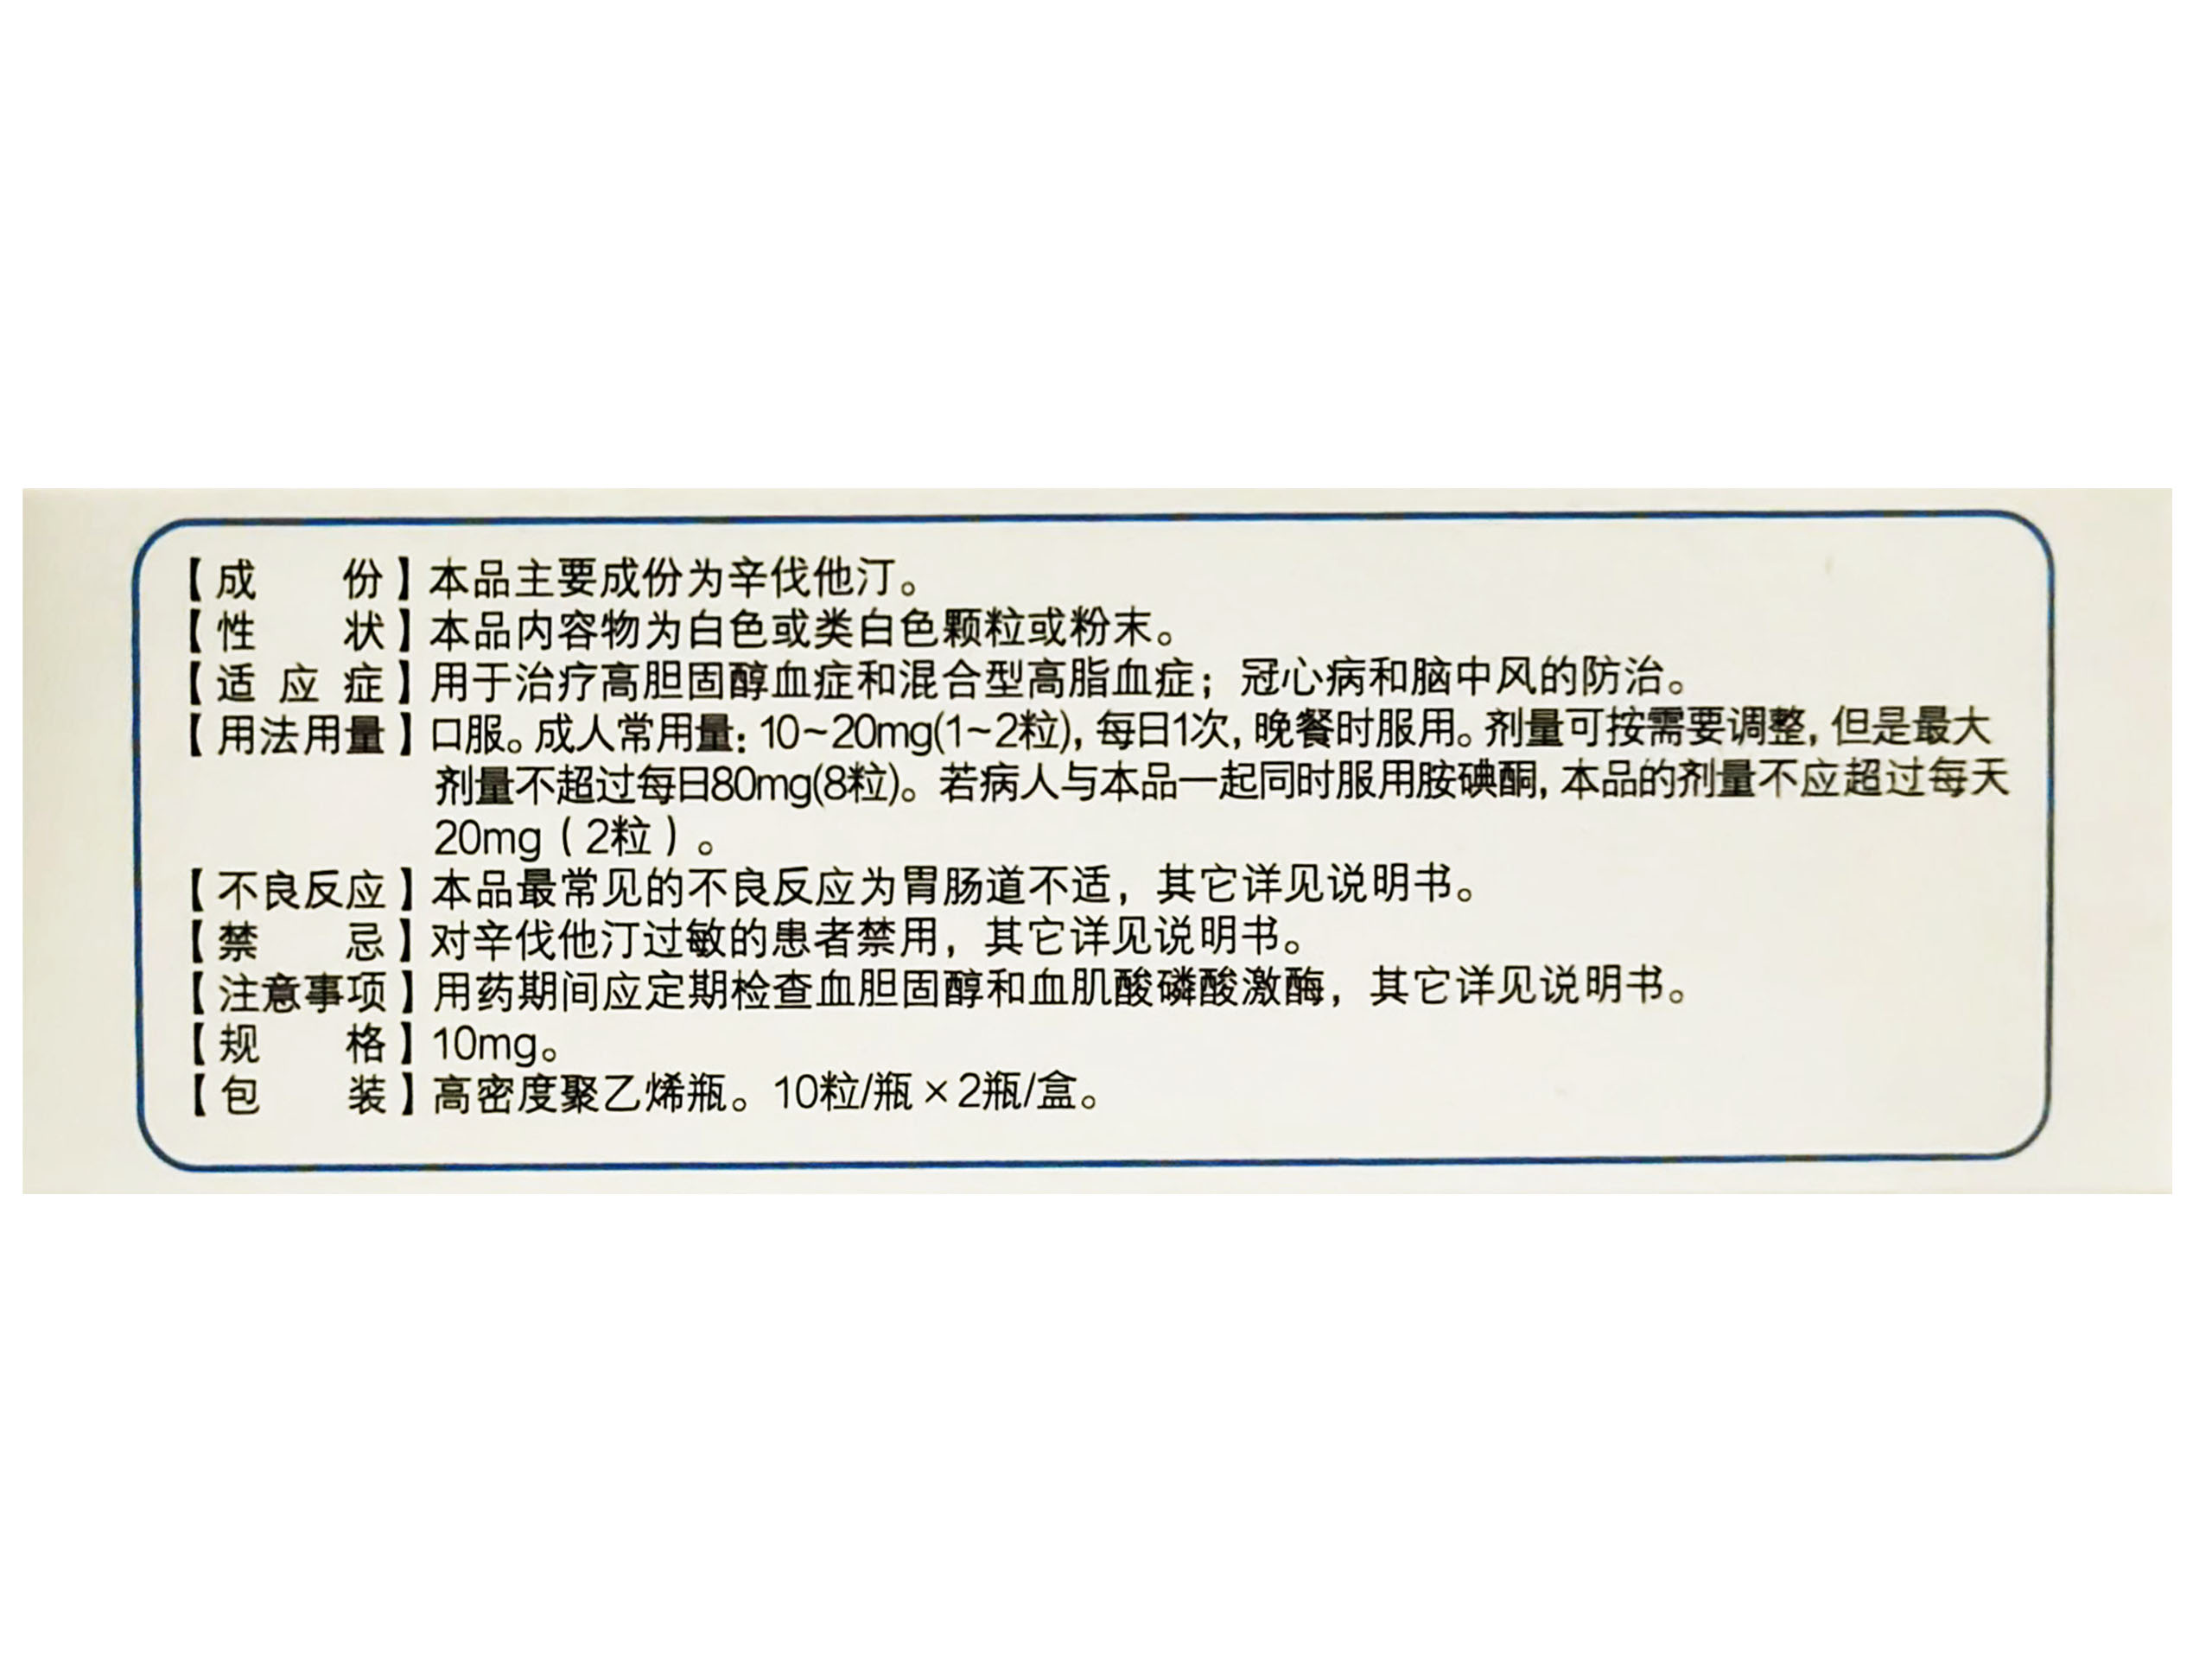 【成份】本品主要成份为辛伐他汀。
【性状】本品内容物为白色或类白色颗粒或粉末。
【适应症】用于治疗高胆固醇血症和混合型高脂血症；冠心病和脑中风的防治。
【用法用量】口服。成人常用量：10~20mg(1~2粒)，每日1次，晚餐时服用。剂量可按需要调整，但是最大
剂量不超过每日80mg(8粒)。若病人与本品一起同时服用胺碘酮，本品的剂量不应超过每天
20mg（2粒）。
【不良反应】本品最常见的不良反应为胃肠道不适，其它详见说明书。
【禁忌】对辛伐他汀过敏的患者禁用，其它详见说明书。
【注意事项】用药期间应定期检查血胆固醇和血肌酸磷酸激酶，其它详见说明书。
【规格】10mg。
【包装】高密度聚乙烯瓶。10粒/瓶×2瓶/盒。